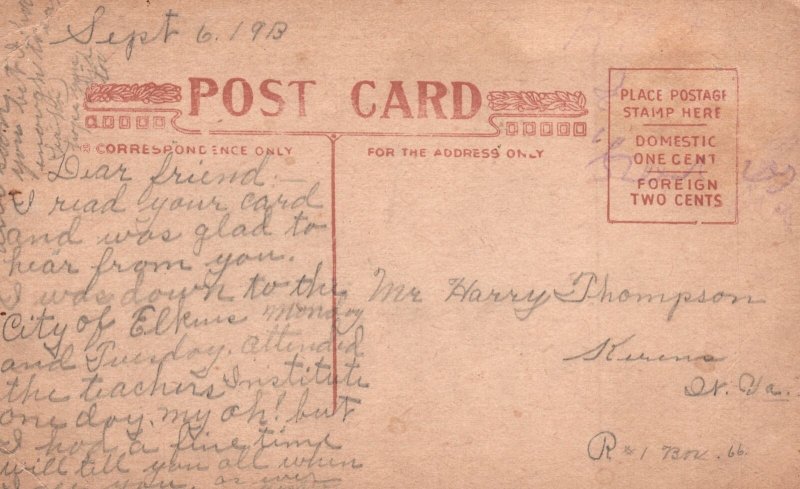 Sept 6. 1913
POST CARD
CORRESPONDENCE ONLY
FOR THE ADDRESS ONLY
PLACE POSTAGE
STAMP HERE
DOMESTIC
ONE CENT
FOREIGN
TWO CENTS
Dear friend—
I read your card
and was glad to
hear from you.
I was down to the
City of Elkins Monday
and Tuesday. attended
the teachers Institute
one day. my oh! but
I had a fine time
will tell you all when
you. as ever
Mr Harry Thompson
Kerens
W. Va.
R #1 Box. 66.